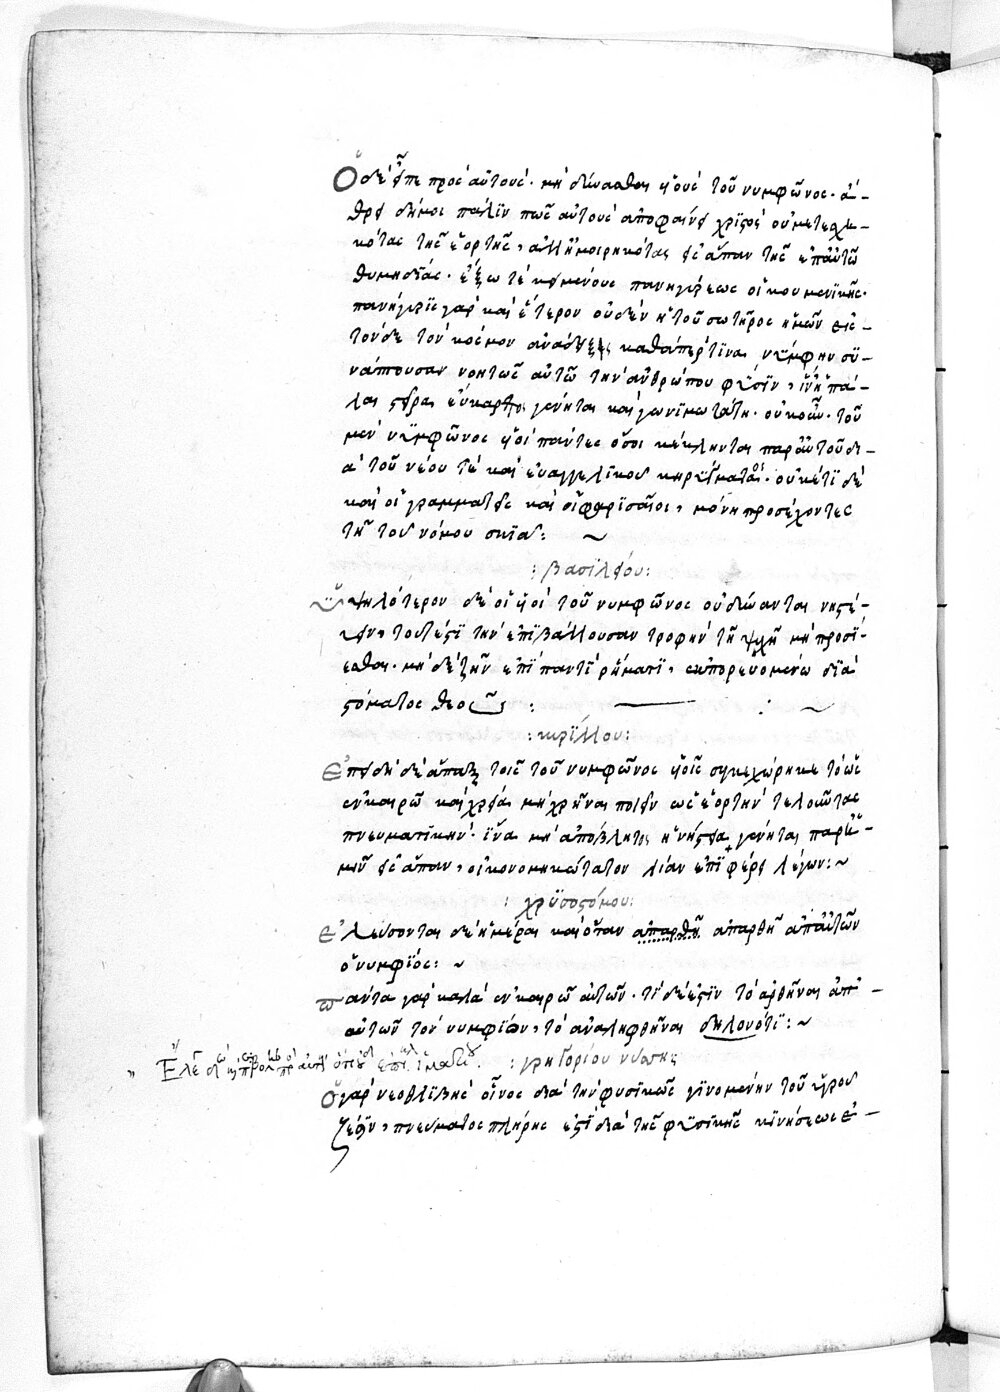 Ὁ δὲ εἶπε πρὸς αὐτούς· μὴ δύνασθαι υἱοὺς τοῦ νυμφῶνος· ἀ-
θρει δή μοι πάλιν πῶς αὐτοὺς ἀποφαίνει χριστὸς οὐ μετεσχη-
κότας τῆς ἑορτῆς, ἀλλ' ἠμοιρηκότας εἰς ἅπαν τῆς ἐπ' αὐτῶ
θυμηδίας· ἔξω τὲ κειμένους πανηγύρεως οἰκουμενικῆς·
πανήγυρις γὰρ καὶ ἕτερον οὐδὲν ἡ τοῦ σωτῆρος ἡμῶν εἰς
τόνδε τὸν κόσμον ἀνάδειξις καθάπερ τινα νύμφην συ-
νάπτουσαν νοητῶς αὐτῶ τὴν ἀνθρώπου φύσιν, ἵν' ἡ πά-
λαι στεῖρα εὔκαρπος γένηται καὶ γονιμωτάτη· οὐκοῦν τοῦ
μὲν νυμφῶνος υἱοὶ πάντες ὅσοι κέκληνται παρ' αὐτοῦ δι-
ὰ τοῦ νέου τὲ καὶ εὐαγγελικοῦ κηρύγματος· οὐκέτι δὲ
καὶ οἱ γραμματεῖς καὶ οἱ φαρισαῖοι, μόνη προσέχοντες
τῆ τοῦ νόμου σκιᾶ: ~
: βασιλείου:
Ὑψηλότερον δὲ οἱ υἱοὶ τοῦ νυμφῶνος οὐ δύνανται νηστεύ-
ειν, τουτέστι τὴν ἐπιβάλλουσαν τροφὴν τῆ ψυχῆ μὴ προσί-
εσθαι· μὴ δὲ ζῆν ἐπὶ παντὶ ῥήματι, ἐκπορευομένω διὰ
στόματος θεοῦ :
: κυρίλλου:
Ἐπειδὴ δὲ ἅπαξ τοῖς τοῦ νυμφῶνος υἱοῖς συγκεχώρηκε τὸ ὡς
ἐν καιρῶ καὶ χρείᾳ μὴ χρῆναι ποιεῖν ὡς ἑορτὴν τελοῦντας
πνευματικήν· ἵνα μὴ ἀπόβλητος ἡ νηστεία γένηται παρ' ἡ-
μῖν εἰς ἅπαν, οἰκονομικώτατον λίαν ἐπιφέρει λέγων: ~
: χρυσοστόμου:
Ἐλεύσονται δὲ ἡμέραι καὶ ὅταν ἀπαρθῆ ἀπαρθῆ ἀπ' αὐτῶν
ὁ νυμφίος: ~
πάντα γὰρ καλὰ ἐν καιρῶ αὐτῶν· τί δέ ἐστιν τὸ ἀρθῆναι ἀπ' -
αὐτῶν τὸν νυμφίον, τὸ ἀναληφθῆναι δηλονότι: ~
: γρηγορίου νύσσης
Ὁ γὰρ νεοθλιβὴς οἶνος διὰ τὴν φυσικῶς γινομένην τοῦ ὑγροῦ
ζέσιν, πνεύματος πλήρης ἐστὶ διὰ τῆς φυσικῆς κινήσεως ἐ-